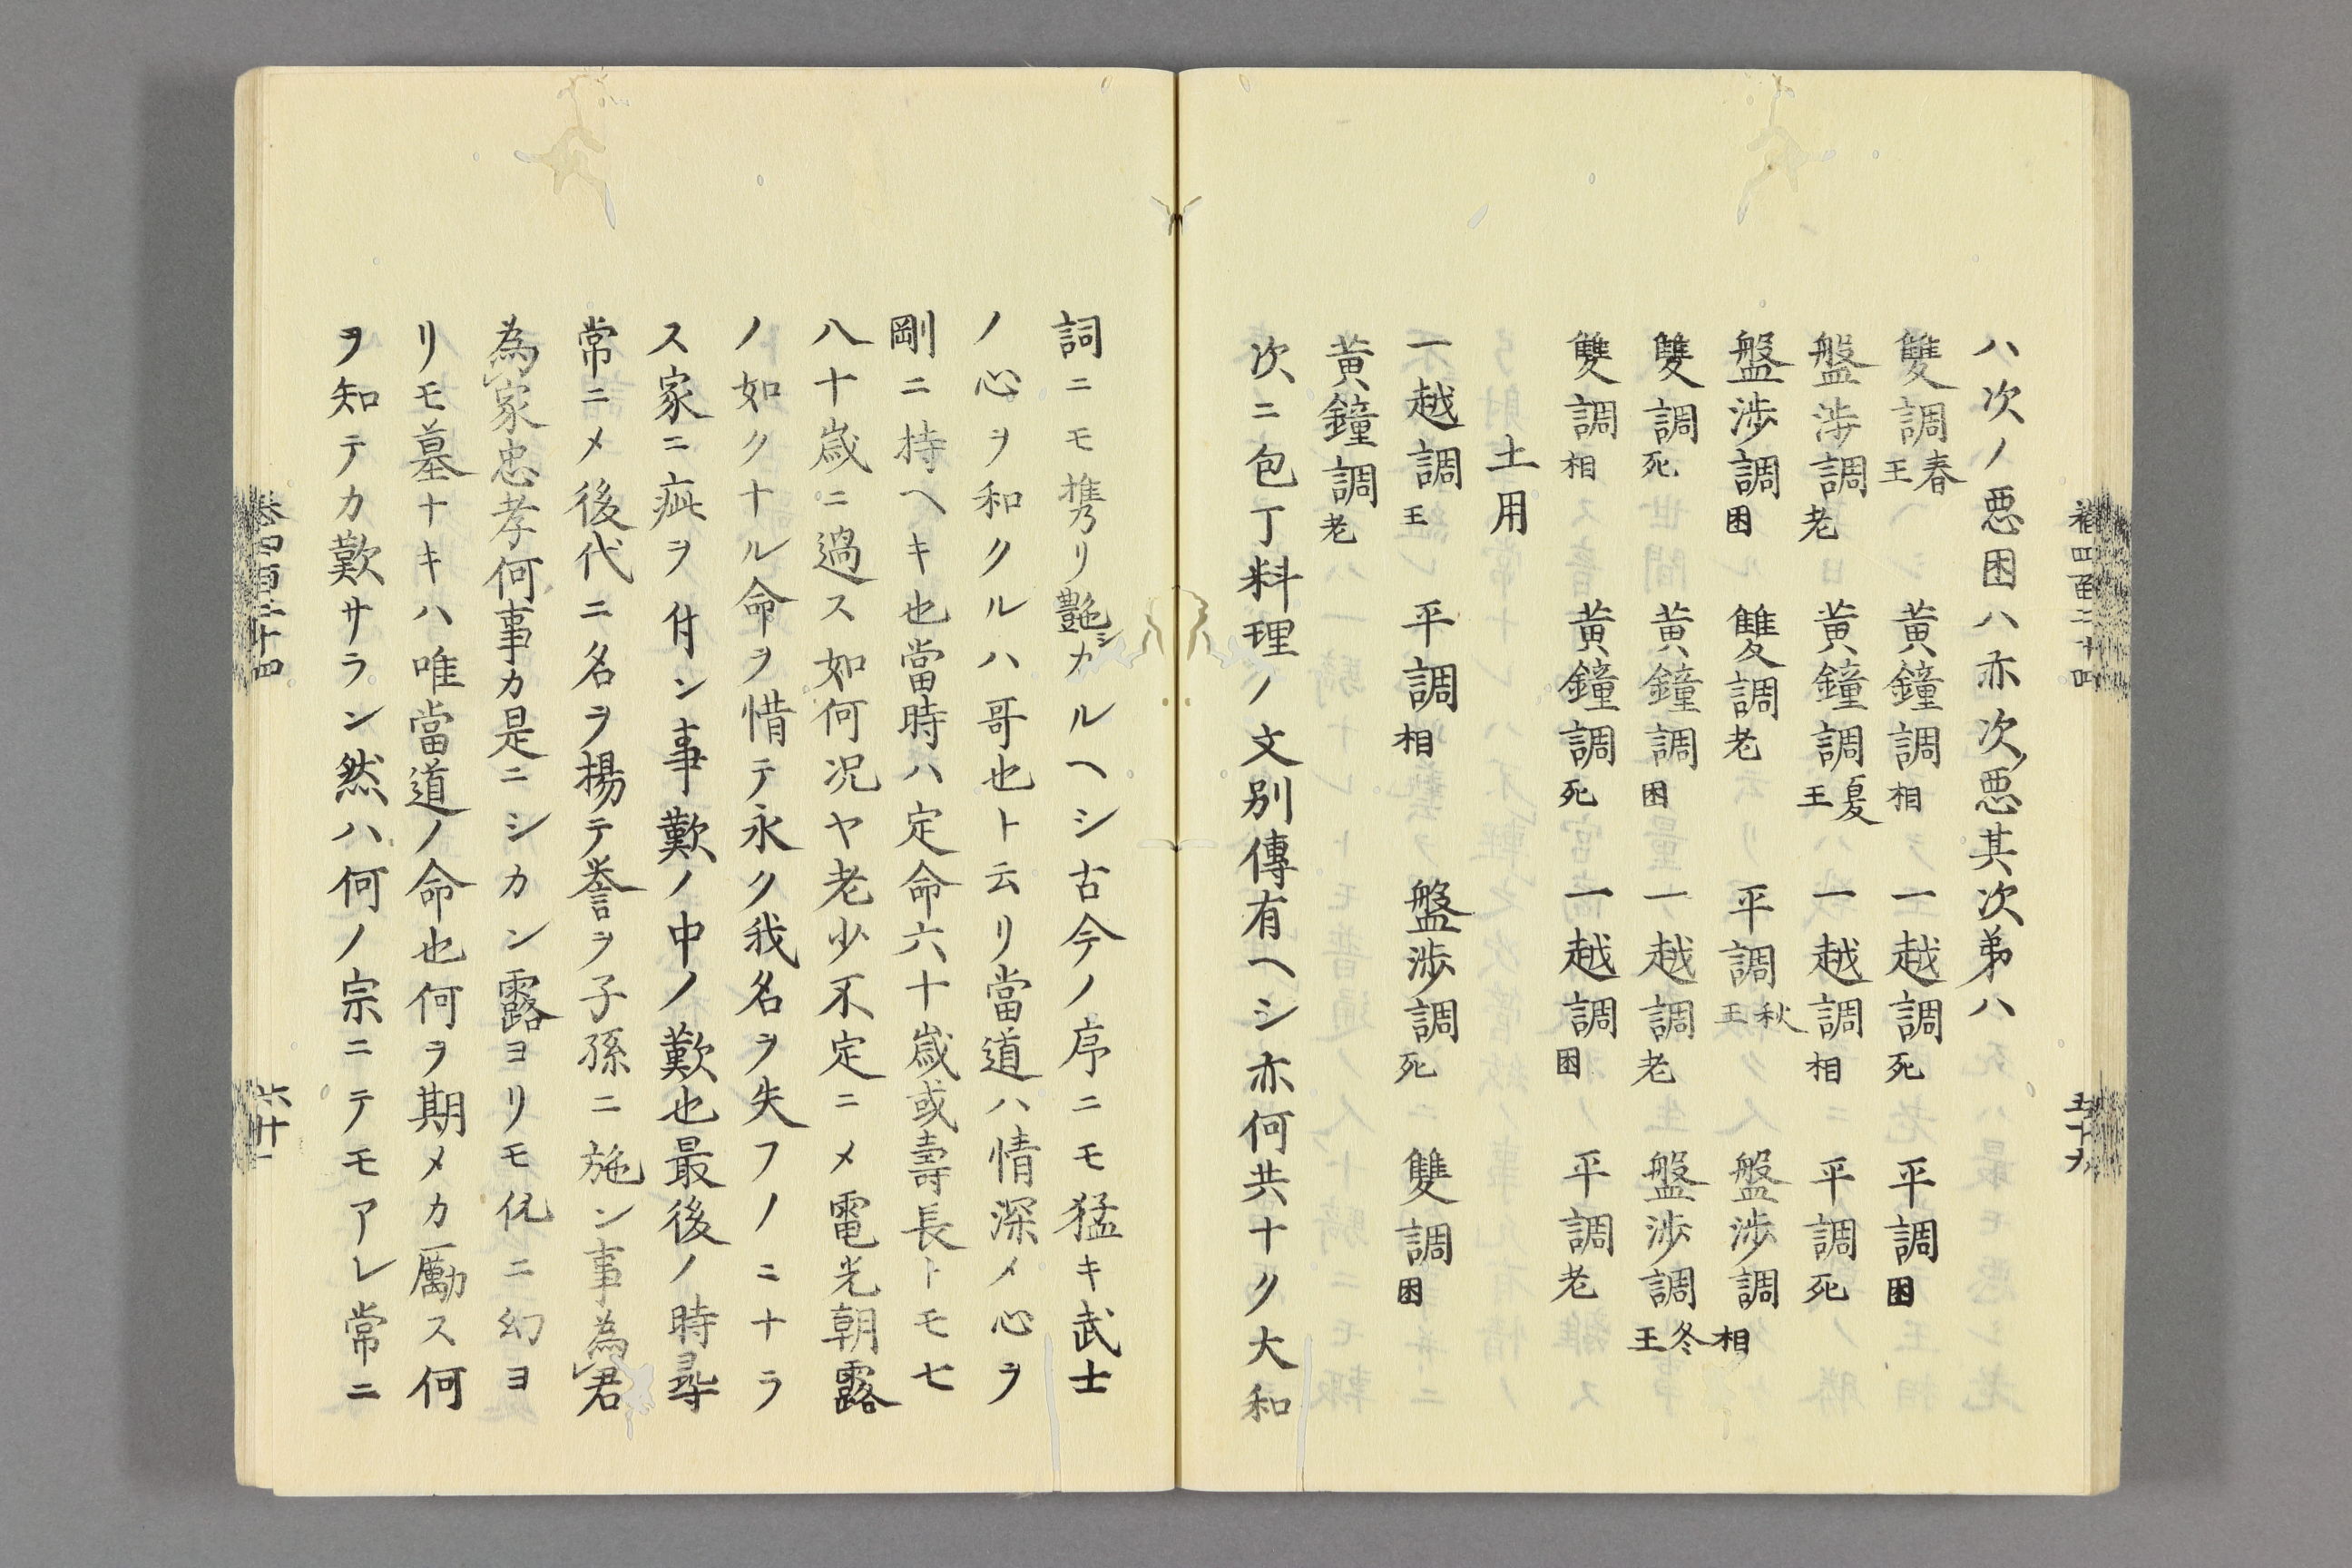 ハ次ノ悪困ハ亦次ノ悪其次第ハ
雙調春王　黄鐘調相　一越調死　平調困
盤渉調老　黄鐘調夏王　一越調相　平調死
盤渉調困　雙調老　平調秋王　盤渉調相
雙調死　黄鐘調困　一越調老　盤渉調冬王
雙調相　黄鐘調死　一越調困　平調老
土用
一越調王　平調相　盤渉調死　雙調困
黄鐘調老
次ニ包丁料理ノ文別傳有ヘシ亦何共ナク大和
詞ニモ携リ艶シカルヘシ古今ノ序ニモ猛キ武士
ノ心ヲ和クルハ哥也ト云リ當道ハ情深メ心ヲ
剛ニ持ヘキ也當時ハ定命六十歳或壽長トモ七
八十歳ニ過ス如何况ヤ老少不定ニメ電光朝露
ノ如クナル命ヲ惜テ永ク我名ヲ失フノニナラ
ス家ニ疵ヲ付ン事歎ノ中ノ歎也最後ノ時尋
常ニメ後代ニ名ヲ揚テ誉ヲ子孫ニ施ン事為君
為家忠孝何事カ是ニシカン露ヨリモ仇ニ幻ヨ
リモ墓ナキハ唯當道ノ命也何ヲ期メカ勵ス何
ヲ知テカ歎サラン然ハ何ノ宗ニテモアレ常ニ
巻四百二十四